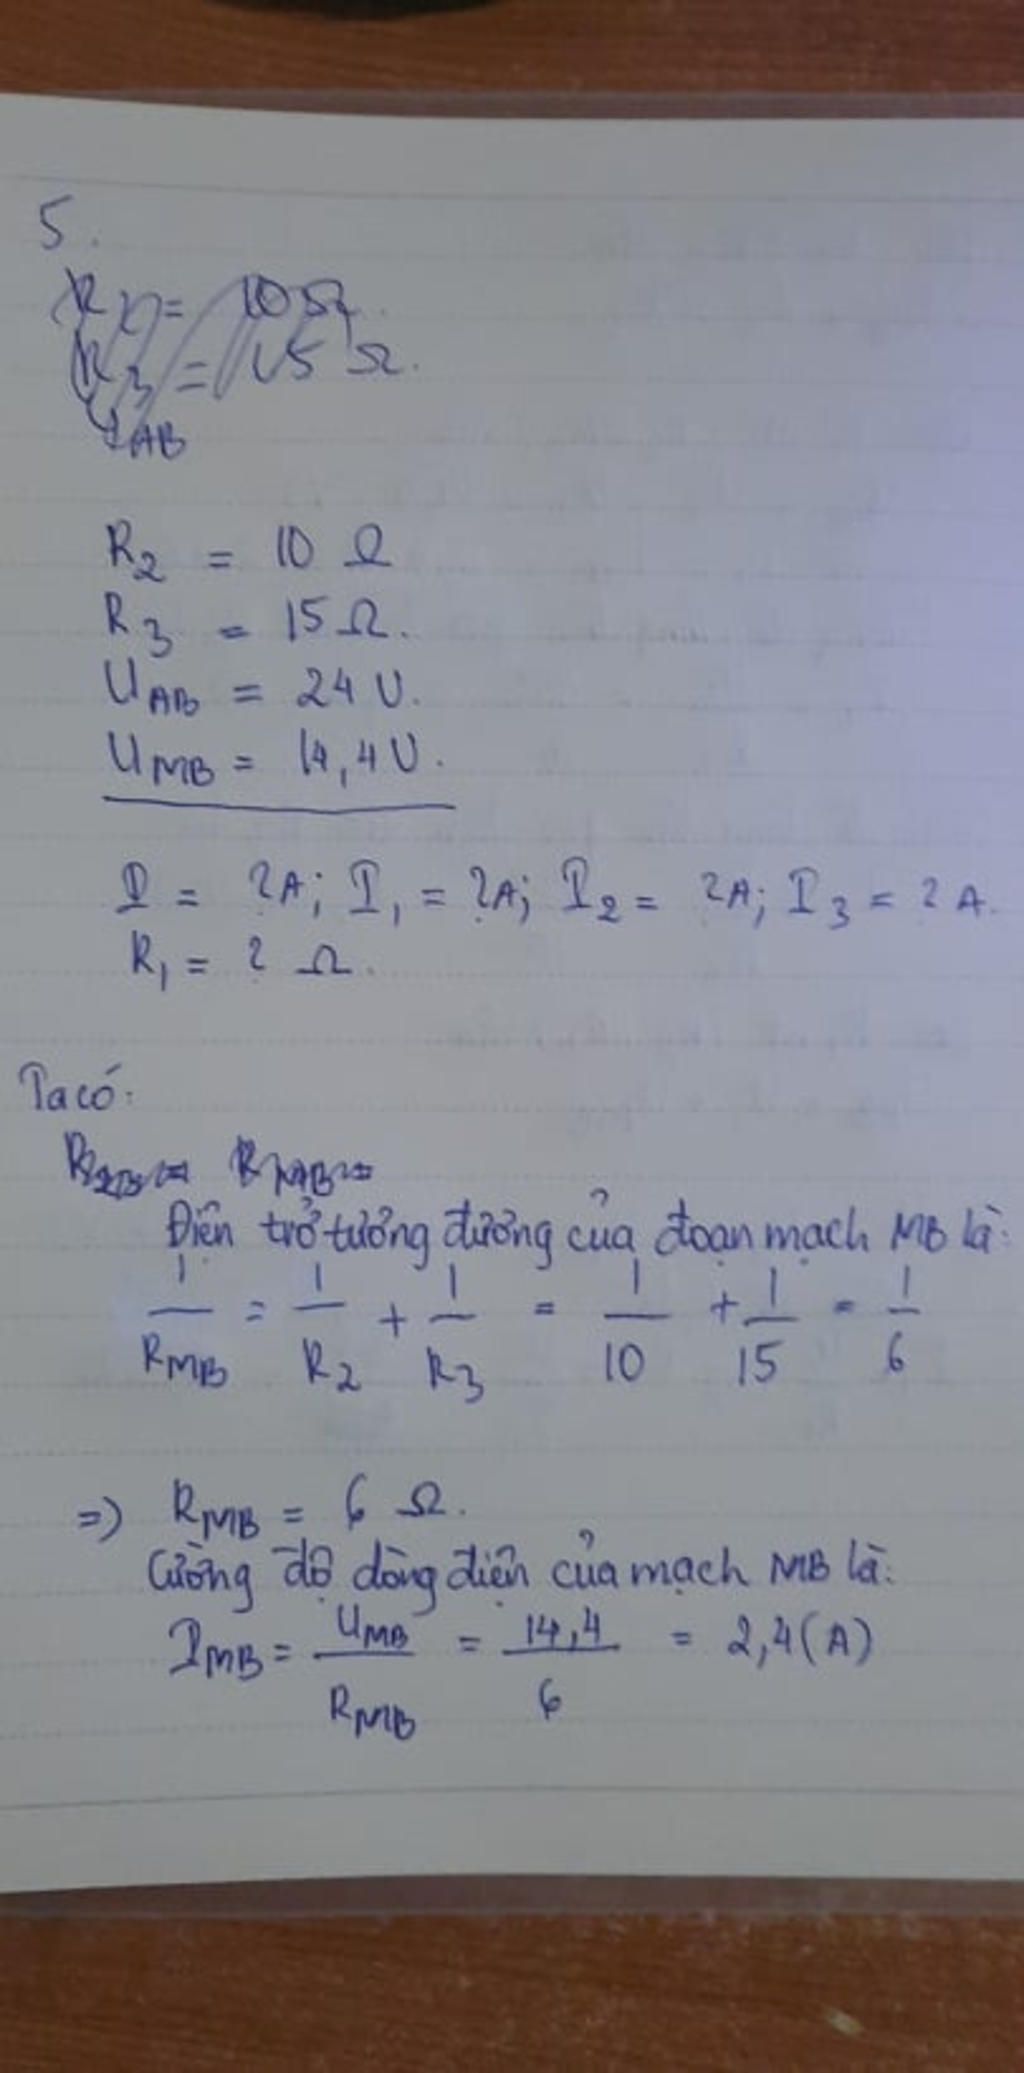 5.
R2 = 10 Ω.
R3 = 15 Ω.
AB
R2 = 10 Ω
R3 = 15 Ω.
UAB = 24 V.
UMB = 14,4 V.
I = ? A; I1 = ? A; I2 = ? A; I3 = ? A.
R1 = ? Ω.
Ta có:
RMB =
Điện trở tương đương của đoạn mạch MB là:
1/RMB = 1/R2 + 1/R3 = 1/10 + 1/15 = 1/6
=) RMB = 6 Ω.
Cường độ dòng điện của mạch MB là:
IMB = UMB/RMB = 14,4/6 = 2,4 (A)